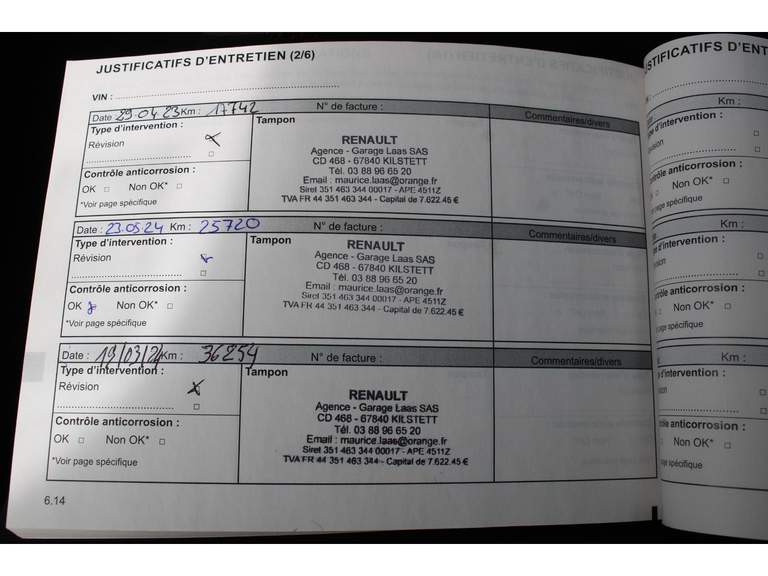 JUSTIFICATIFS D'ENTRETIEN (2/6)
VIN :
Date 29.04 23 Km : 17742 N° de facture :
Commentaires/divers
Type d'intervention :
Révision
Contrôle anticorrosion :
OK Non OK*
*Voir page spécifique
Tampon
RENAULT
Agence - Garage Laas SAS
CD 468 - 67840 KILSTETT
Tél. 03 88 96 65 20
Email : maurice.laas@orange.fr
Siret 351 463 344 00017 - APE 4511Z
TVA FR 44 351 463 344 - Capital de 7.622.45 €
Date : 23.05.24 Km : 25720 N° de facture :
Commentaires/divers
Type d'intervention :
Révision
Contrôle anticorrosion :
OK Non OK*
*Voir page spécifique
Tampon
RENAULT
Agence - Garage Laas SAS
CD 468 - 67840 KILSTETT
Tél. 03 88 96 65 20
Email : maurice.laas@orange.fr
Siret 351 463 344 00017 - APE 4511Z
TVA FR 44 351 463 344 - Capital de 7.622.45 €
Date : 19/03/24 Km : 36254 N° de facture :
Commentaires/divers
Type d'intervention :
Révision
Contrôle anticorrosion :
OK Non OK*
*Voir page spécifique
Tampon
RENAULT
Agence - Garage Laas SAS
CD 468 - 67840 KILSTETT
Tél. 03 88 96 65 20
Email : maurice.laas@orange.fr
Siret 351 463 344 00017 - APE 4511Z
TVA FR 44 351 463 344 - Capital de 7.622.45 €
6.14
JUSTIFICATIFS D'ENT
Km :
d'intervention :
anticorrosion :
Non OK*
page spécifique
Km :
d'intervention :
anticorrosion :
Non OK*
page spécifique
Km :
d'intervention :
anticorrosion :
Non OK*
page spécifique